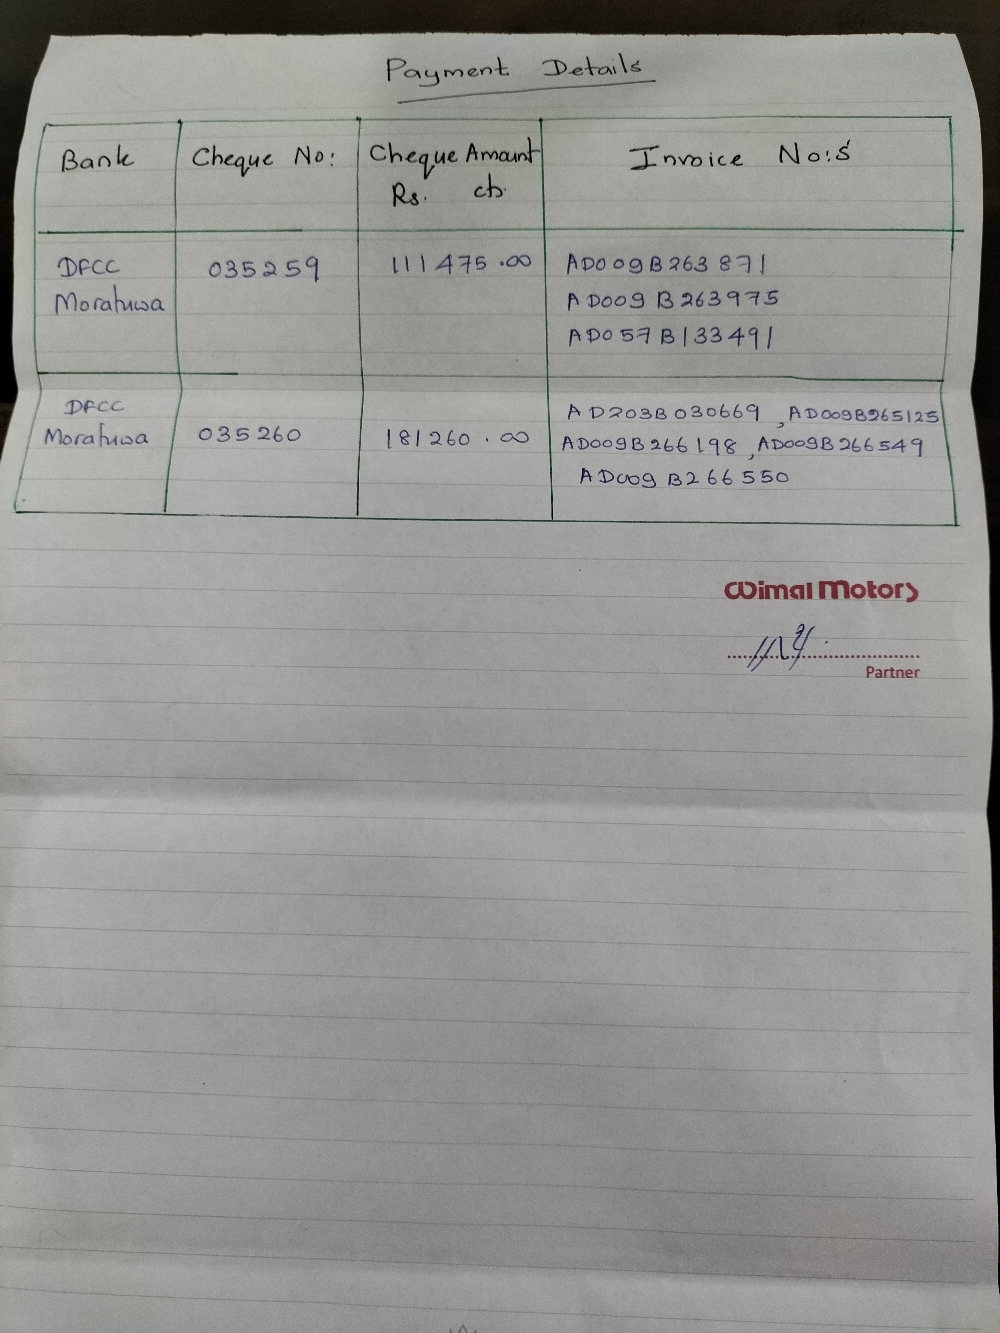 Payment Details
Bank Cheque No: Cheque Amount Invoice No:s
Rs. cts.
DFCC 035259 111475.00 AD009B263871
Moratuwa AD009B263975
AD057B133491
DFCC AD203B030669, AD009B265125
Moratuwa 035260 181260.00 AD009B266198, AD009B266549
AD009B266550
Wimal Motors
Partner